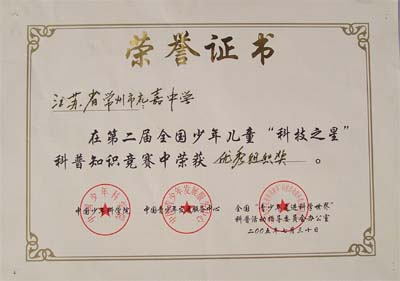 荣誉证书
江苏省常州市北嘉中学
在第二届全国少年儿童“科技之星”
科普知识竞赛中荣获 优秀组织奖 。
中国少年科学院 中国青少年发展服务中心 全国“青少年走进科学世界”
科普活动指导委员会办公室
二00五年七月三十日